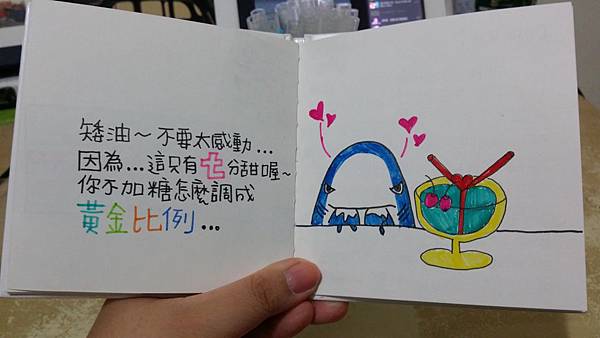 矮油~不要太感動...
因為...這只有七分甜喔~
你不加糖怎麼調成
黃金比例...